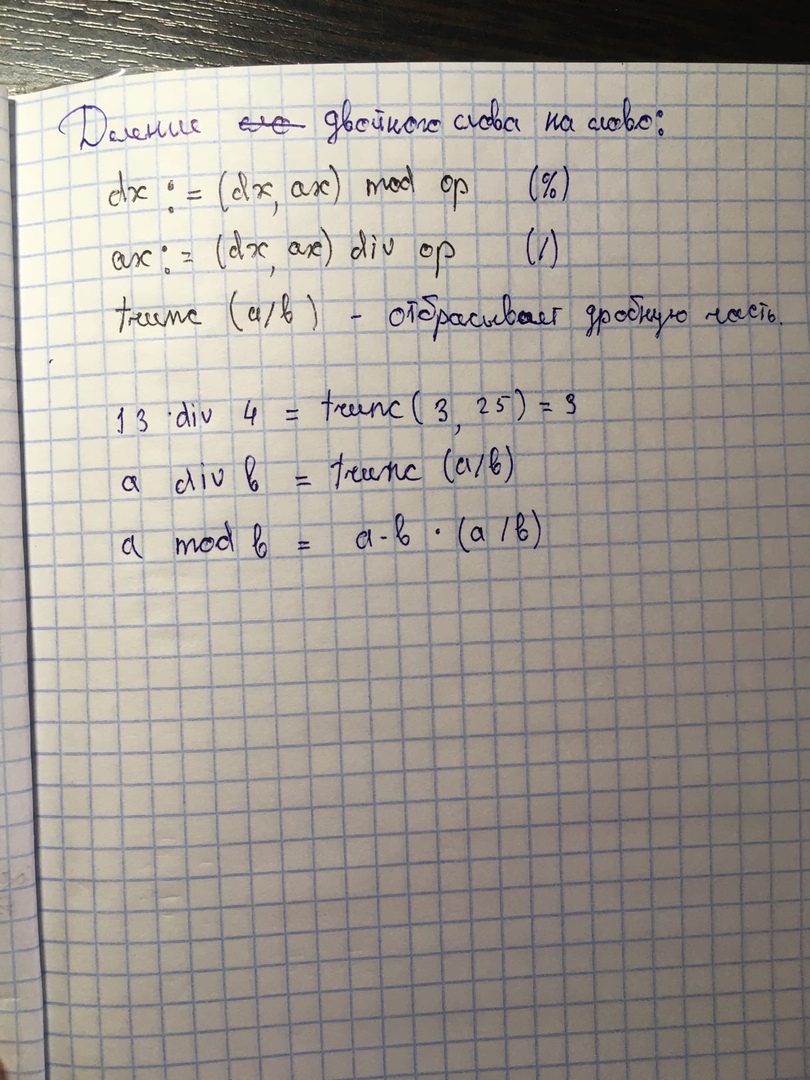 Деление двойного слова на слово:
dx := (dx, ax) mod op (%)
ax := (dx, ax) div op (/)
trunc (a/b) - отбрасывает дробную часть.
13 div 4 = trunc(3,25) = 3
a div b = trunc (a/b)
a mod b = a-b · (a/b)